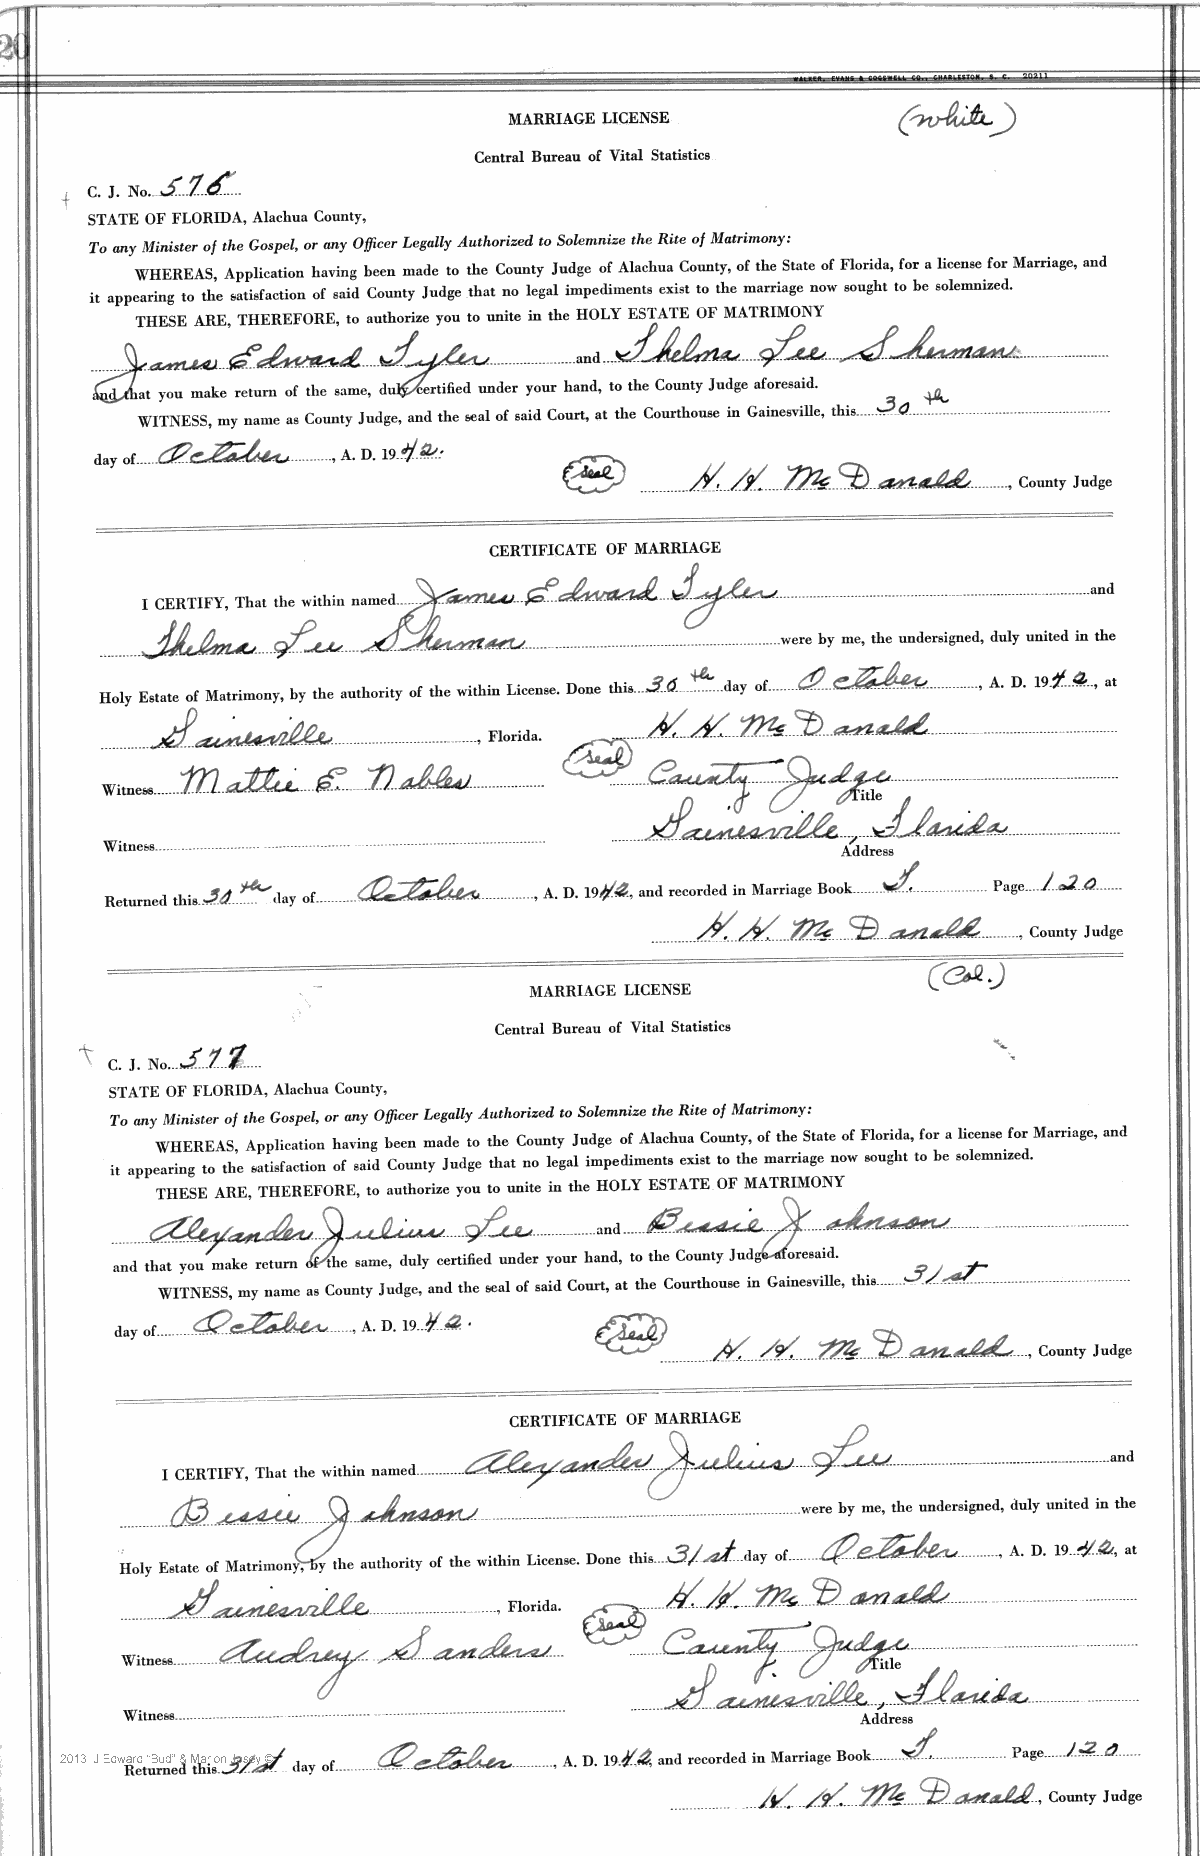 20
WALKER, EVANS & COGSWELL CO., CHARLESTON, S. C. 20211
MARRIAGE LICENSE (White)
Central Bureau of Vital Statistics
C. J. No. 576
STATE OF FLORIDA, Alachua County,
To any Minister of the Gospel, or any Officer Legally Authorized to Solemnize the Rite of Matrimony:
WHEREAS, Application having been made to the County Judge of Alachua County, of the State of Florida, for a license for Marriage, and
it appearing to the satisfaction of said County Judge that no legal impediments exist to the marriage now sought to be solemnized.
THESE ARE, THEREFORE, to authorize you to unite in the HOLY ESTATE OF MATRIMONY
James Edward Tyler and Thelma Lee Sherman
and that you make return of the same, duly certified under your hand, to the County Judge aforesaid.
WITNESS, my name as County Judge, and the seal of said Court, at the Courthouse in Gainesville, this 30th
day of October, A. D. 1942.
Seal H. H. McDonald, County Judge
CERTIFICATE OF MARRIAGE
I CERTIFY, That the within named James Edward Tyler and
Thelma Lee Sherman were by me, the undersigned, duly united in the
Holy Estate of Matrimony, by the authority of the within License. Done this 30th day of October, A. D. 1942, at
Gainesville, Florida. H. H. McDonald
Seal
Witness Mattie E. Nobles County Judge
Title
Gainesville, Florida
Witness
Address
Returned this 30th day of October, A. D. 1942, and recorded in Marriage Book T. Page 120
H. H. McDonald, County Judge
(Col.)
MARRIAGE LICENSE
Central Bureau of Vital Statistics
C. J. No. 577
STATE OF FLORIDA, Alachua County,
To any Minister of the Gospel, or any Officer Legally Authorized to Solemnize the Rite of Matrimony:
WHEREAS, Application having been made to the County Judge of Alachua County, of the State of Florida, for a license for Marriage, and
it appearing to the satisfaction of said County Judge that no legal impediments exist to the marriage now sought to be solemnized.
THESE ARE, THEREFORE, to authorize you to unite in the HOLY ESTATE OF MATRIMONY
Alexander Julius Lee and Bessie Johnson
and that you make return of the same, duly certified under your hand, to the County Judge aforesaid.
WITNESS, my name as County Judge, and the seal of said Court, at the Courthouse in Gainesville, this 31st
day of October, A. D. 1942.
Seal H. H. McDonald, County Judge
CERTIFICATE OF MARRIAGE
I CERTIFY, That the within named Alexander Julius Lee and
Bessie Johnson were by me, the undersigned, duly united in the
Holy Estate of Matrimony, by the authority of the within License. Done this 31st day of October, A. D. 1942, at
Gainesville, Florida. H. H. McDonald
Seal
Witness Audrey Sanders County Judge
Title
Gainesville, Florida
Witness
Address
2013 J Edward "Bud" & Marion
Returned this 31st day of October, A. D. 1942, and recorded in Marriage Book T. Page 120
H. H. McDonald, County Judge